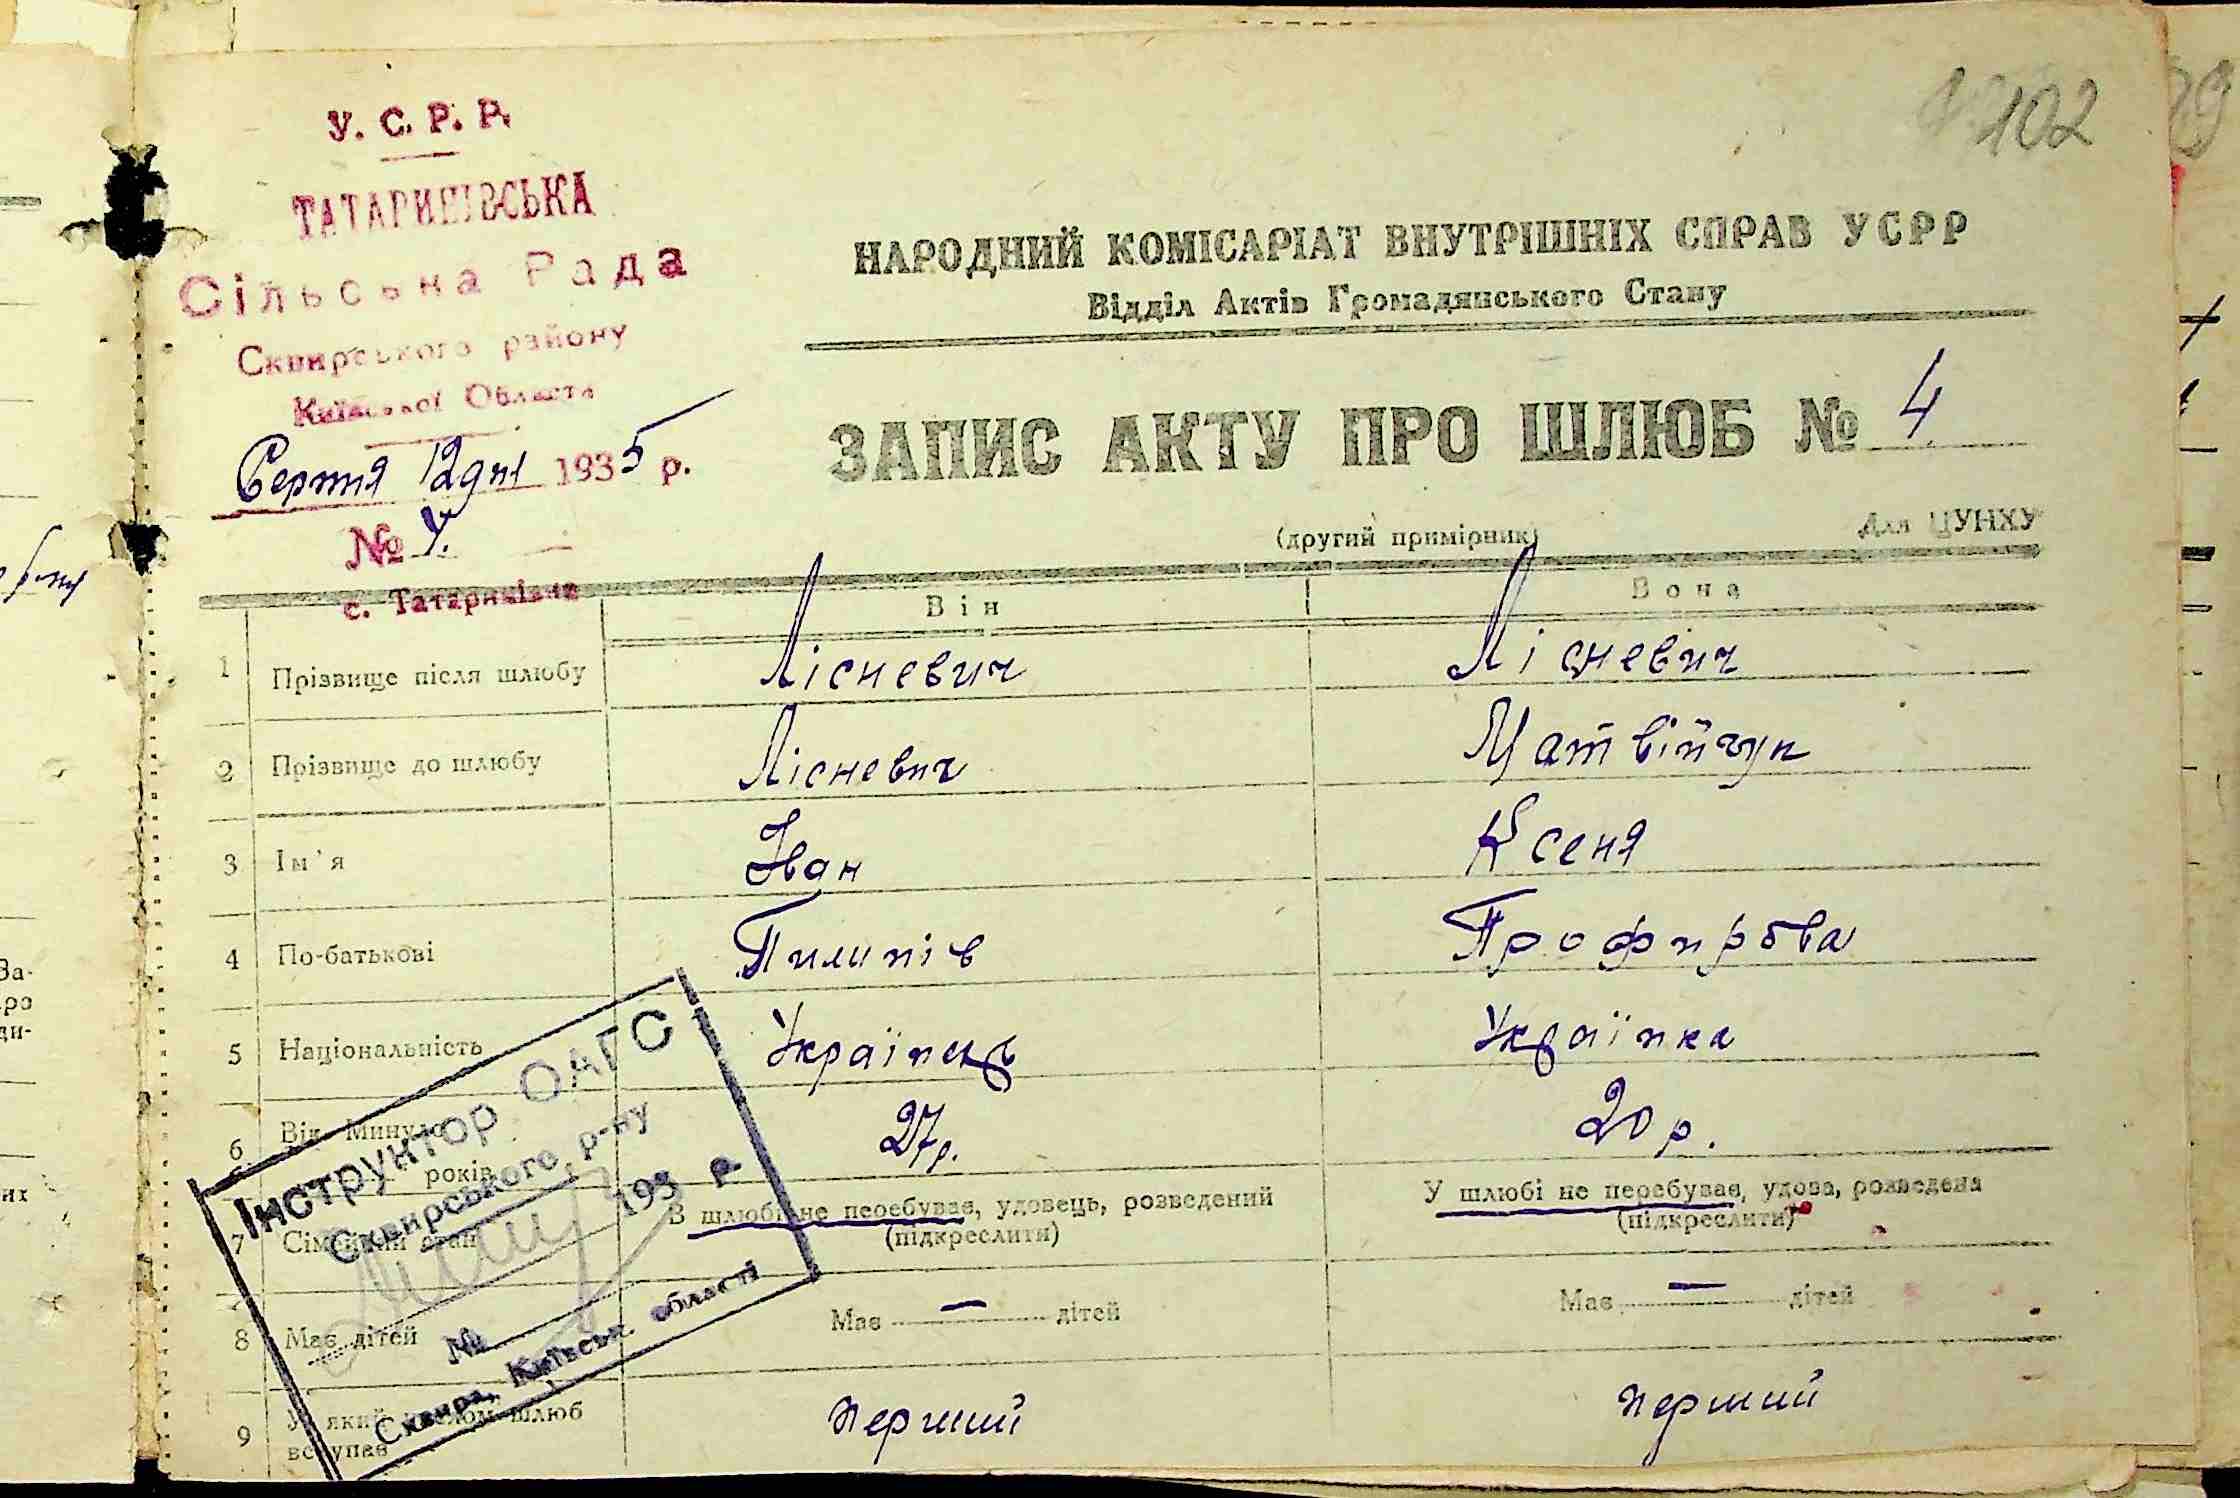 102
У. С. Р. Р.
ТАТАРИНІВСЬКА
Сільська Рада
Сквирського району
Київської Области
Серпня 12 дня 1935 р.
№ 4.
с. Татаринівка
НАРОДНИЙ КОМІСАРІАТ ВНУТРІШНІХ СПРАВ УСРР
Відділ Актів Громадянського Стану
ЗАПИС АКТУ ПРО ШЛЮБ № 4
(другий примірник) Для ЦУНХУ
Він Вона
1 Прізвище після шлюбу Лісневич Лісневич
2 Прізвище до шлюбу Лісневич Матвійчук
3 Ім'я Іван Ксеня
4 По-батькові Пилипів Профирова
5 Національність Українець Українка
6 Вік. Минуло років 27 р. 20 р.
7 Сімейний стан В шлюбі не перебуває, удовець, розведений (підкреслити) У шлюбі не перебуває, удова, розведена (підкреслити)
8 Має дітей Має — дітей Має — дітей
9 У який шлюб вступає перший перший
Інструктор ОАГС
Сквирського р-ну
193 р.
№
Сквира, Київськ. області